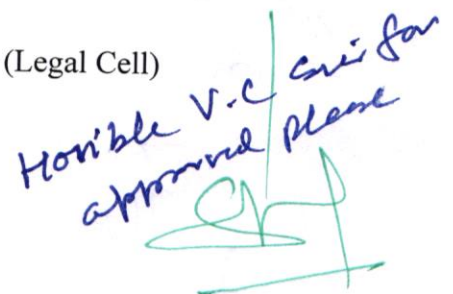 (Legal Cell)
Hon'ble V.C Sir for
approval please